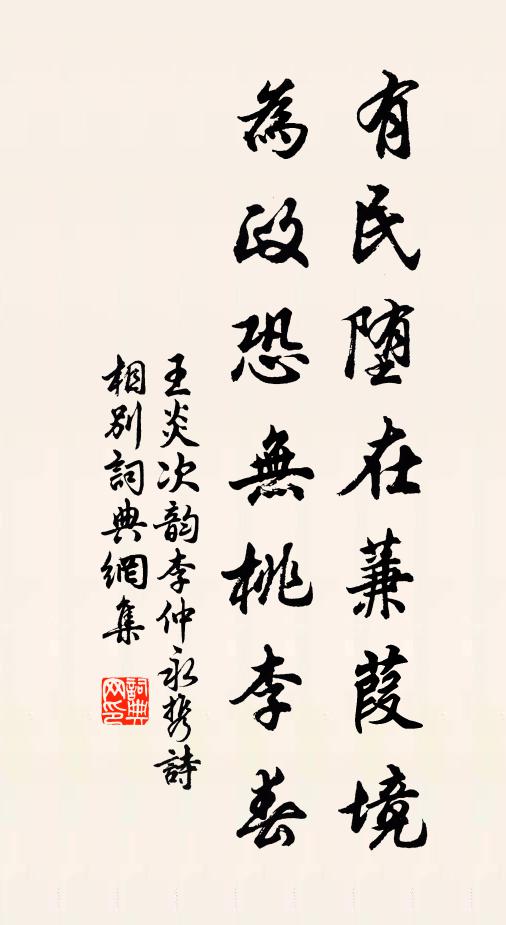 有民堕在蒹葭境
為政恐無桃李春
王炎次韵李仲永携詩
相別詞典網集
詞典网印